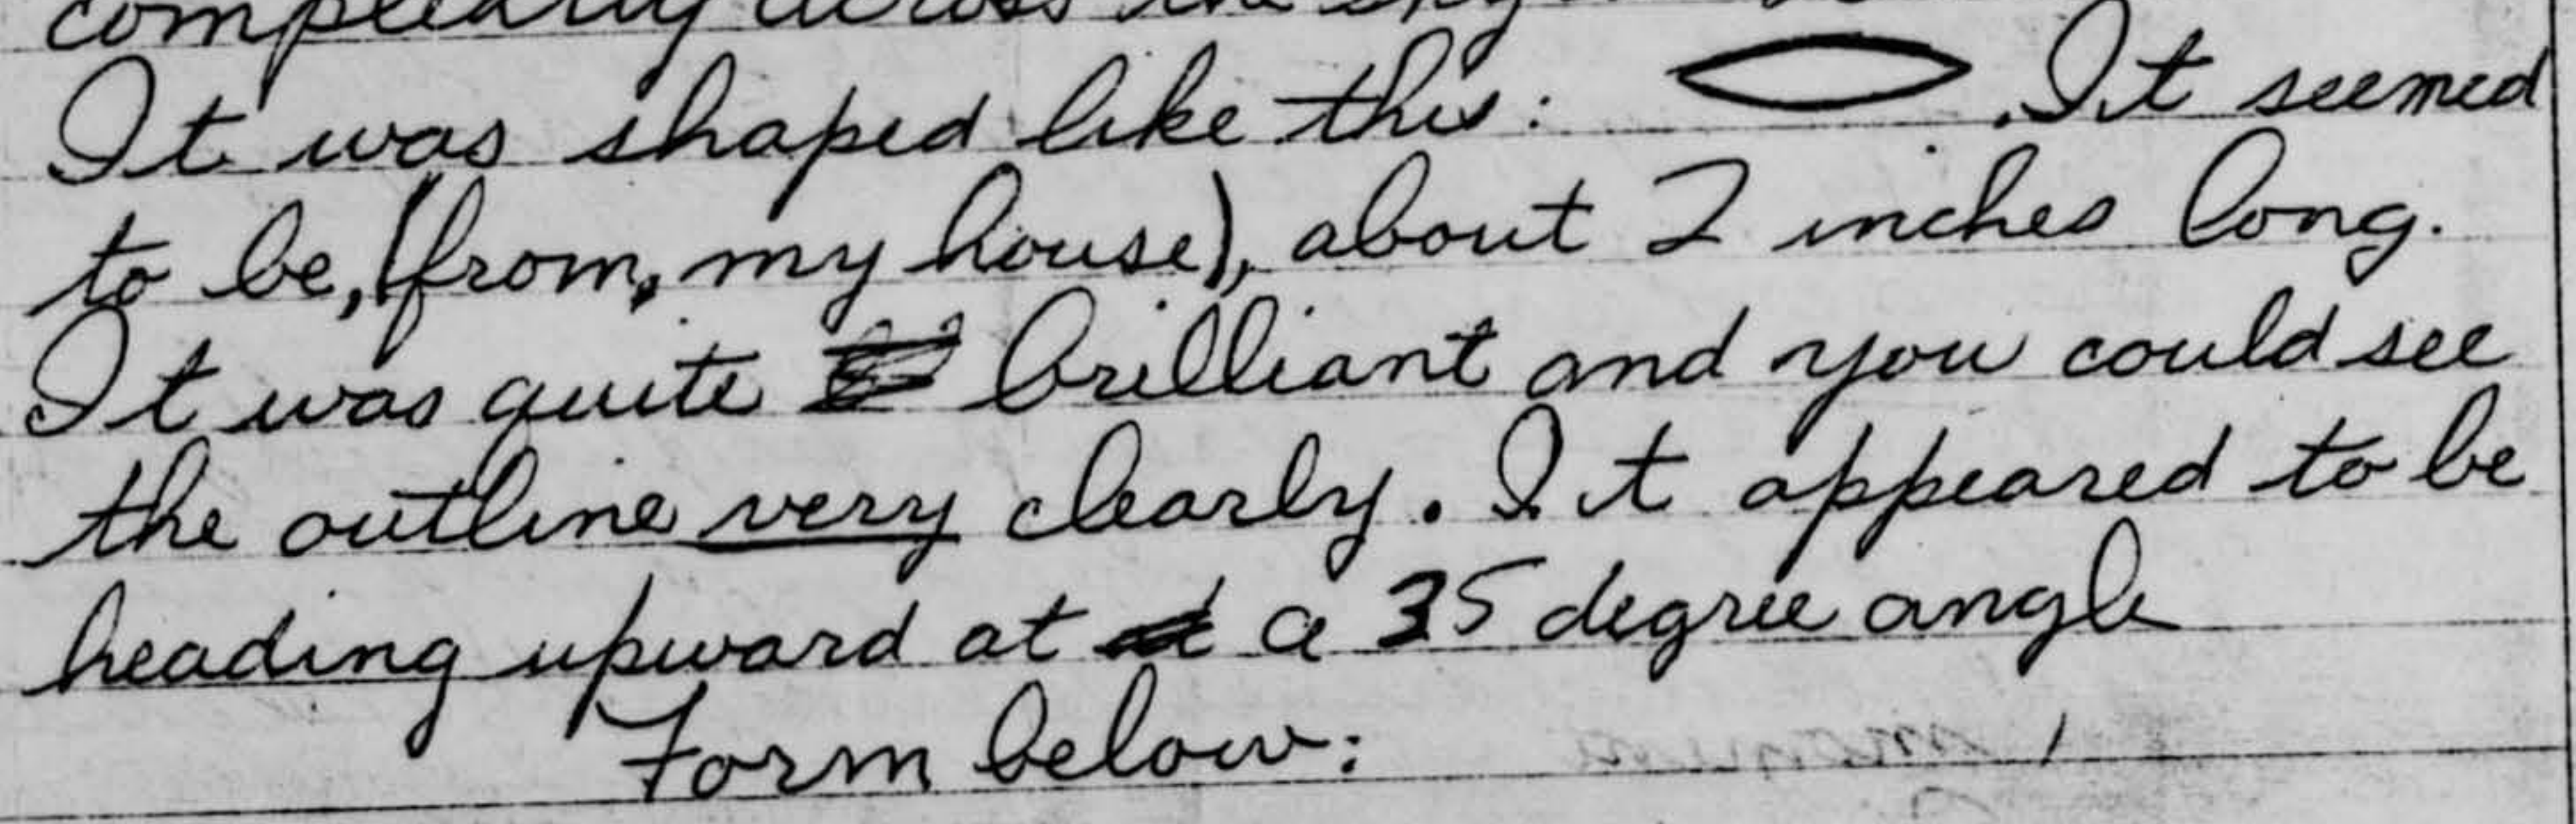 completly across the sky.
It was shaped like this: . It seemed
to be, (from, my house), about 2 inches long.
It was quite brilliant and you could see
the outline very clearly. It appeared to be
heading upward at a 35 degree angle
Form below: